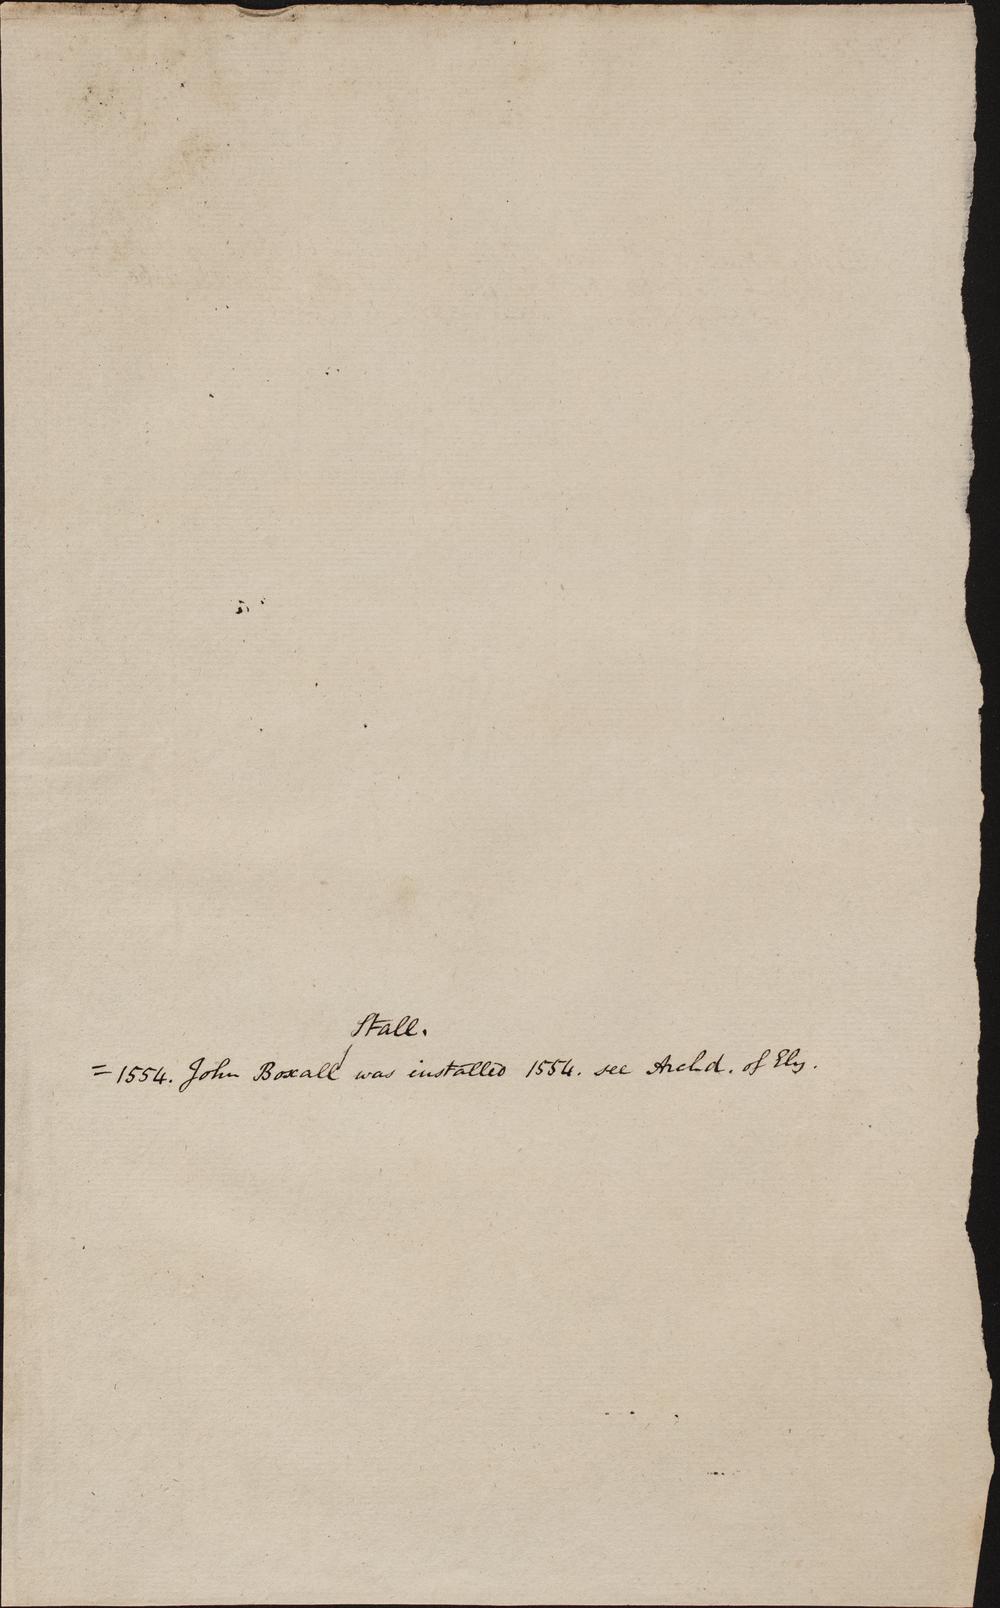 Stall.
= 1554. John Boxall was installed 1554. see Archd. of Ely.